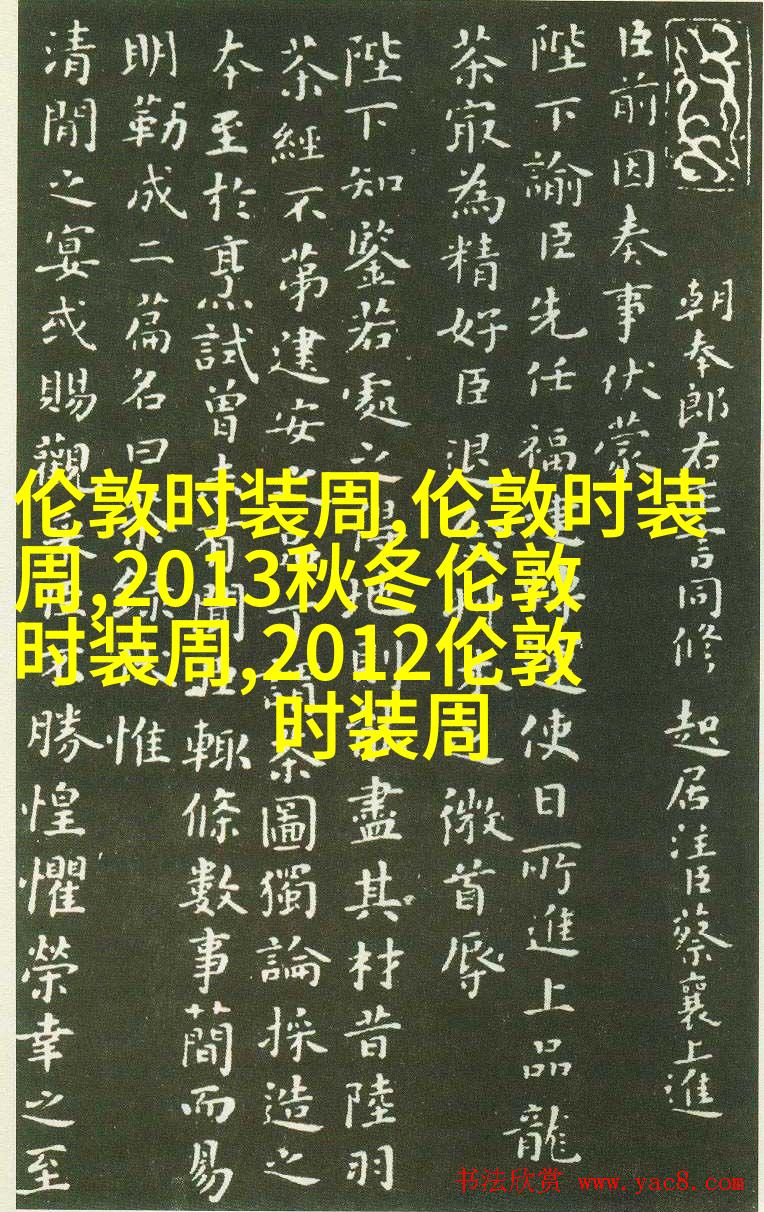 朝奉郎右言同修起居注臣蔡襄上進
臣前因奏事伏蒙
陛下諭臣先任福使日所進上品龍
茶㝡為精好臣退微首辱
陛下知鑒若處之得地則盡其材昔陸羽
茶經不第建安茶圖獨論採造之
本至於烹試曾有聞輒條數事簡而易
明勒成二篇名曰惟
清閒之宴或賜觀勝惶懼榮幸之至
伦敦时装周,伦敦时装
周,2013秋冬伦敦
时装周,2012伦敦
时装周
书法欣赏 www.yac8.com